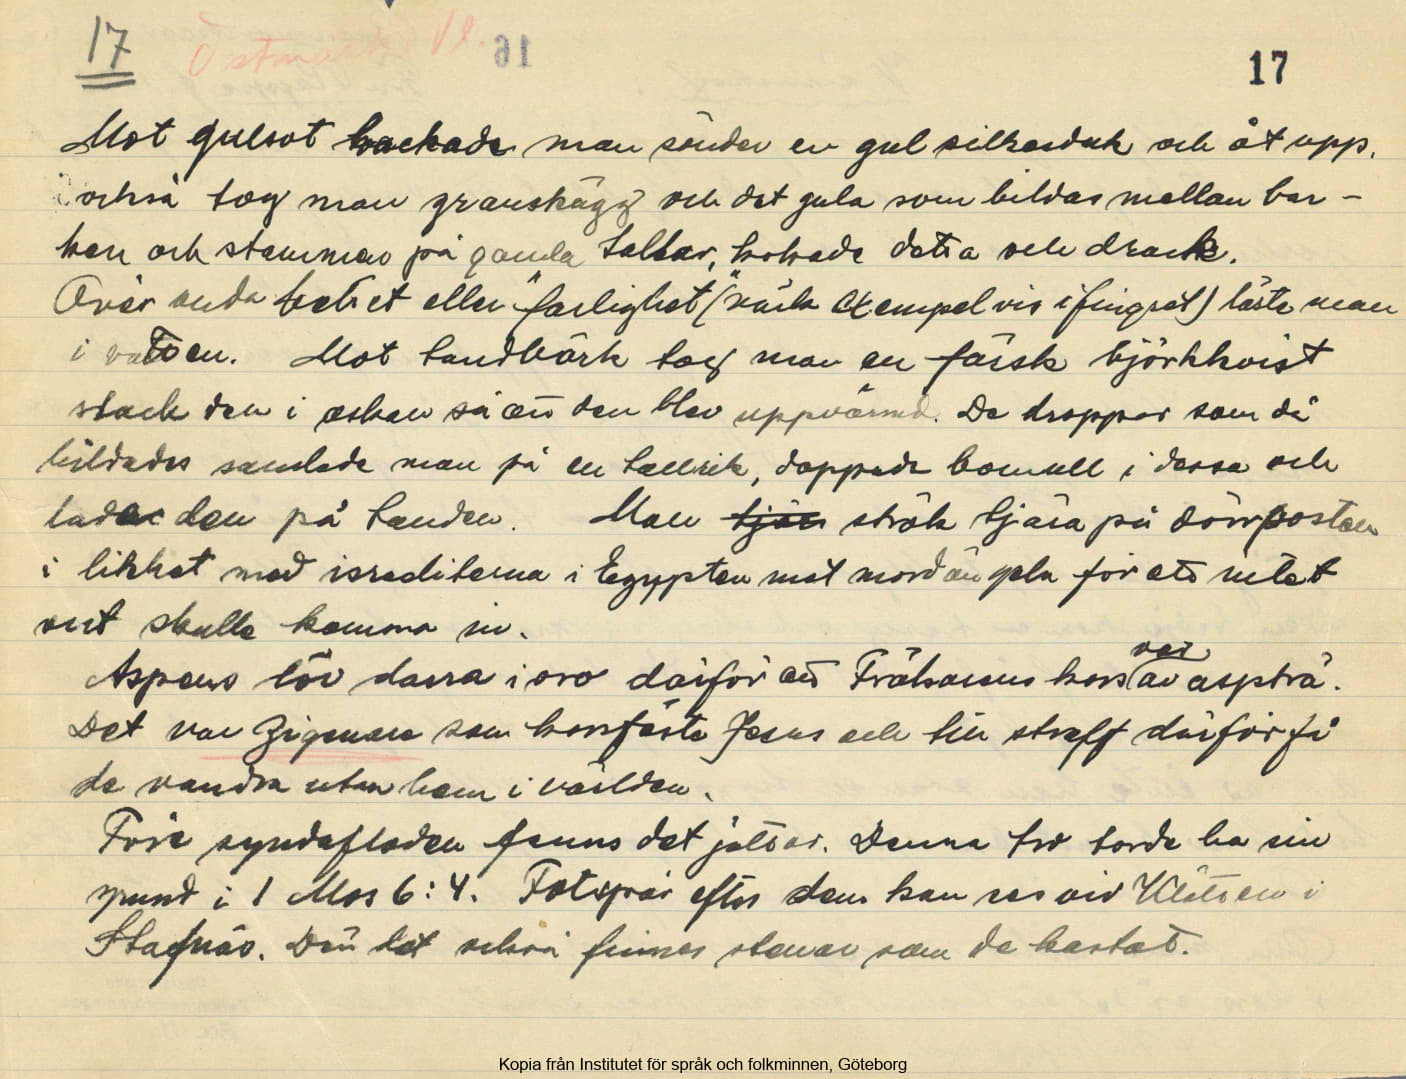 17 Östmark Vl. 16 17
Mot gulsot hackade man sönder en gul silkesduk och åt upp.
också tog man granskägg och det gula som bildas mellan bar-
ken och stammen på gamla tallar, kokade detta och drack.
Över onda betet eller "farlighet" (värk exempelvis i fingret) läste man
i vatten. Mot tandvärk tog man en färsk björkkvist
stack den i askan så att den blev uppvärmd. De droppar som då
bildades samlade man på en tallrik, doppade bomull i dessa och
lade den på tanden. Man strök tjära på dörrposten
i likhet med israeliterna i Egypten mot mordängeln för att intet
ont skulle komma in.
Aspens löv darra i oro därför att Frälsarens kors var av aspträ.
Det var zigenare som korsfäste Jesus och till straff därför få
de vandra utan hem i världen.
Före syndafloden fanns det jättar. Denna tro torde ha sin
grund i 1 Mos 6:4. Fotspår efter dem kan ses vid Klätten i
Stafnäs. Där lät också finnas stenar som de kastat.
Kopia från Institutet för språk och folkminnen, Göteborg